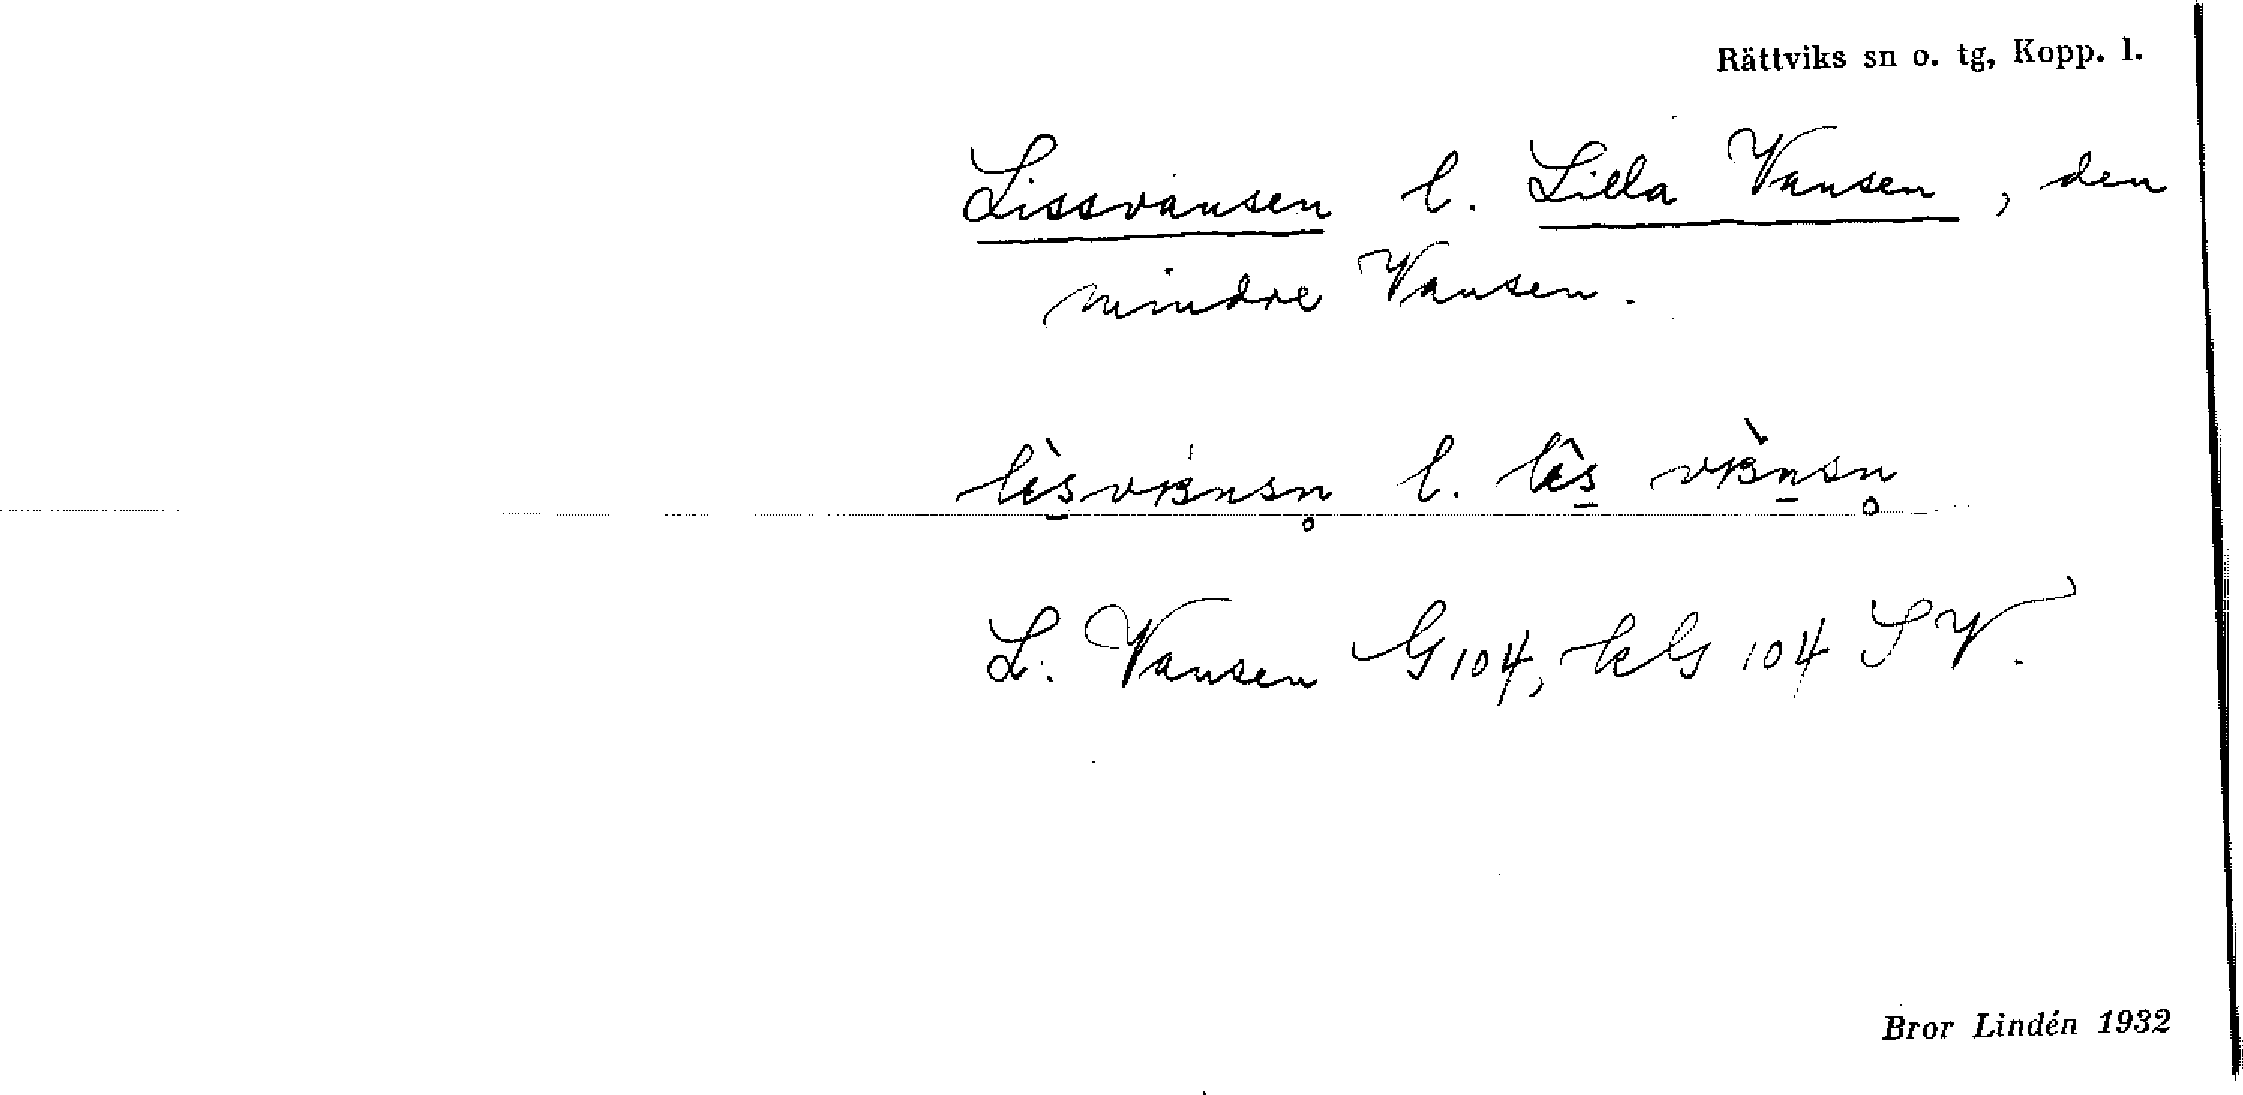 Rättviks sn o. tg, Kopp. l.
Lissvansen l. Lilla Vansen, den
mindre Vansen.
l. 
L. Vansen G 104, kG 104 SV.
Bror Lindén 1932